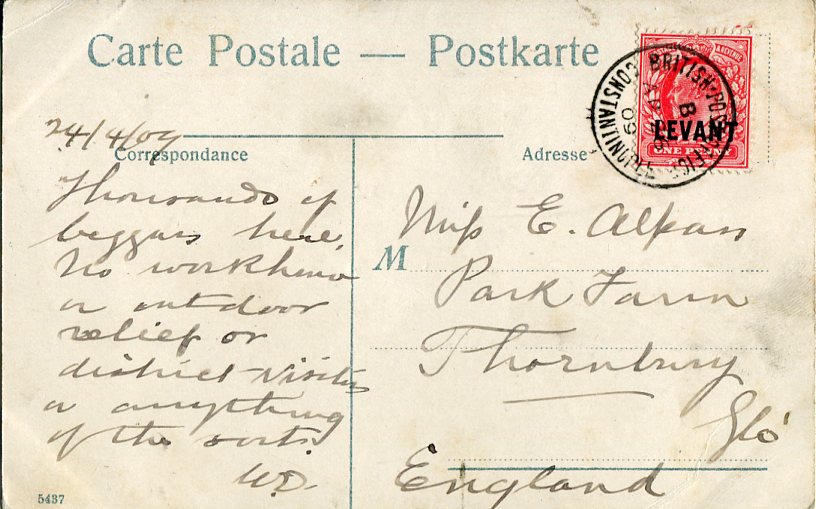 Carte Postale — Postkarte
BRITISH POST OFFICE
CONSTANTINOPLE
B
AP
09
LEVANT
ONE PENNY
24/4/09
Correspondance
Adresse
Thousands of
beggars here,
No workhouse
or outdoor
relief or
district visitors
or anything
of the sorts.
W.D.
M
Miss E. Alpass
Park Farm
Thornbury
Glo
England
5437